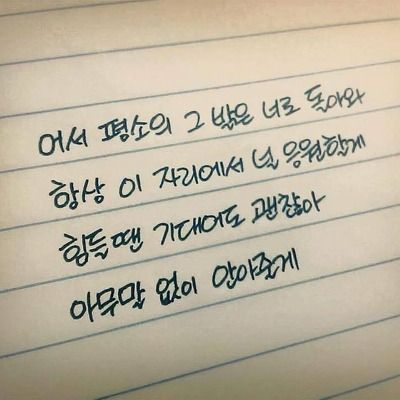 어서 평소의 그 밝은 너로 돌아와
항상 이 자리에서 널 응원할게
힘들땐 기대어도 괜찮아
아무말 없이 안아줄게